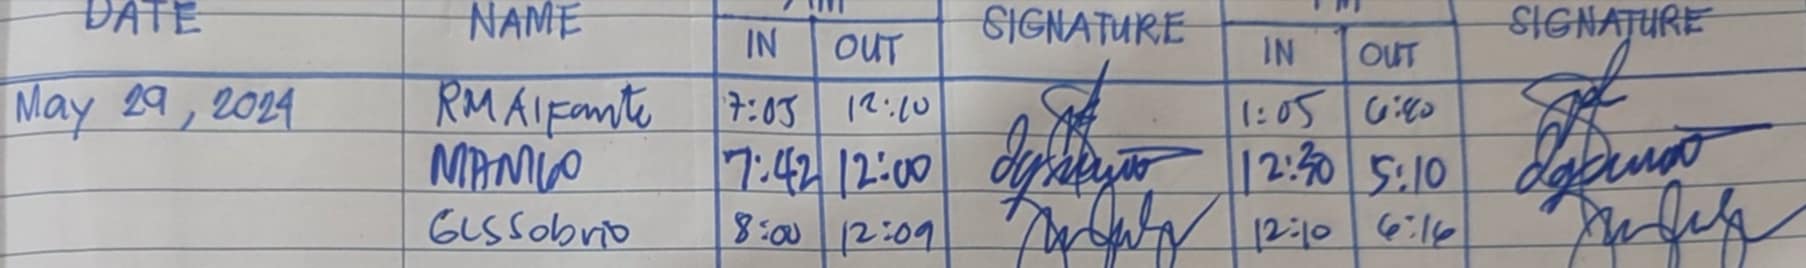 DATE NAME AM SIGNATURE PM SIGNATURE
IN OUT IN OUT
May 29, 2024 RMAlfante 7:05 12:10 1:05 6:40
7:42 12:00 12:30 5:10
GLSSobrio 8:00 12:09 12:10 6:16